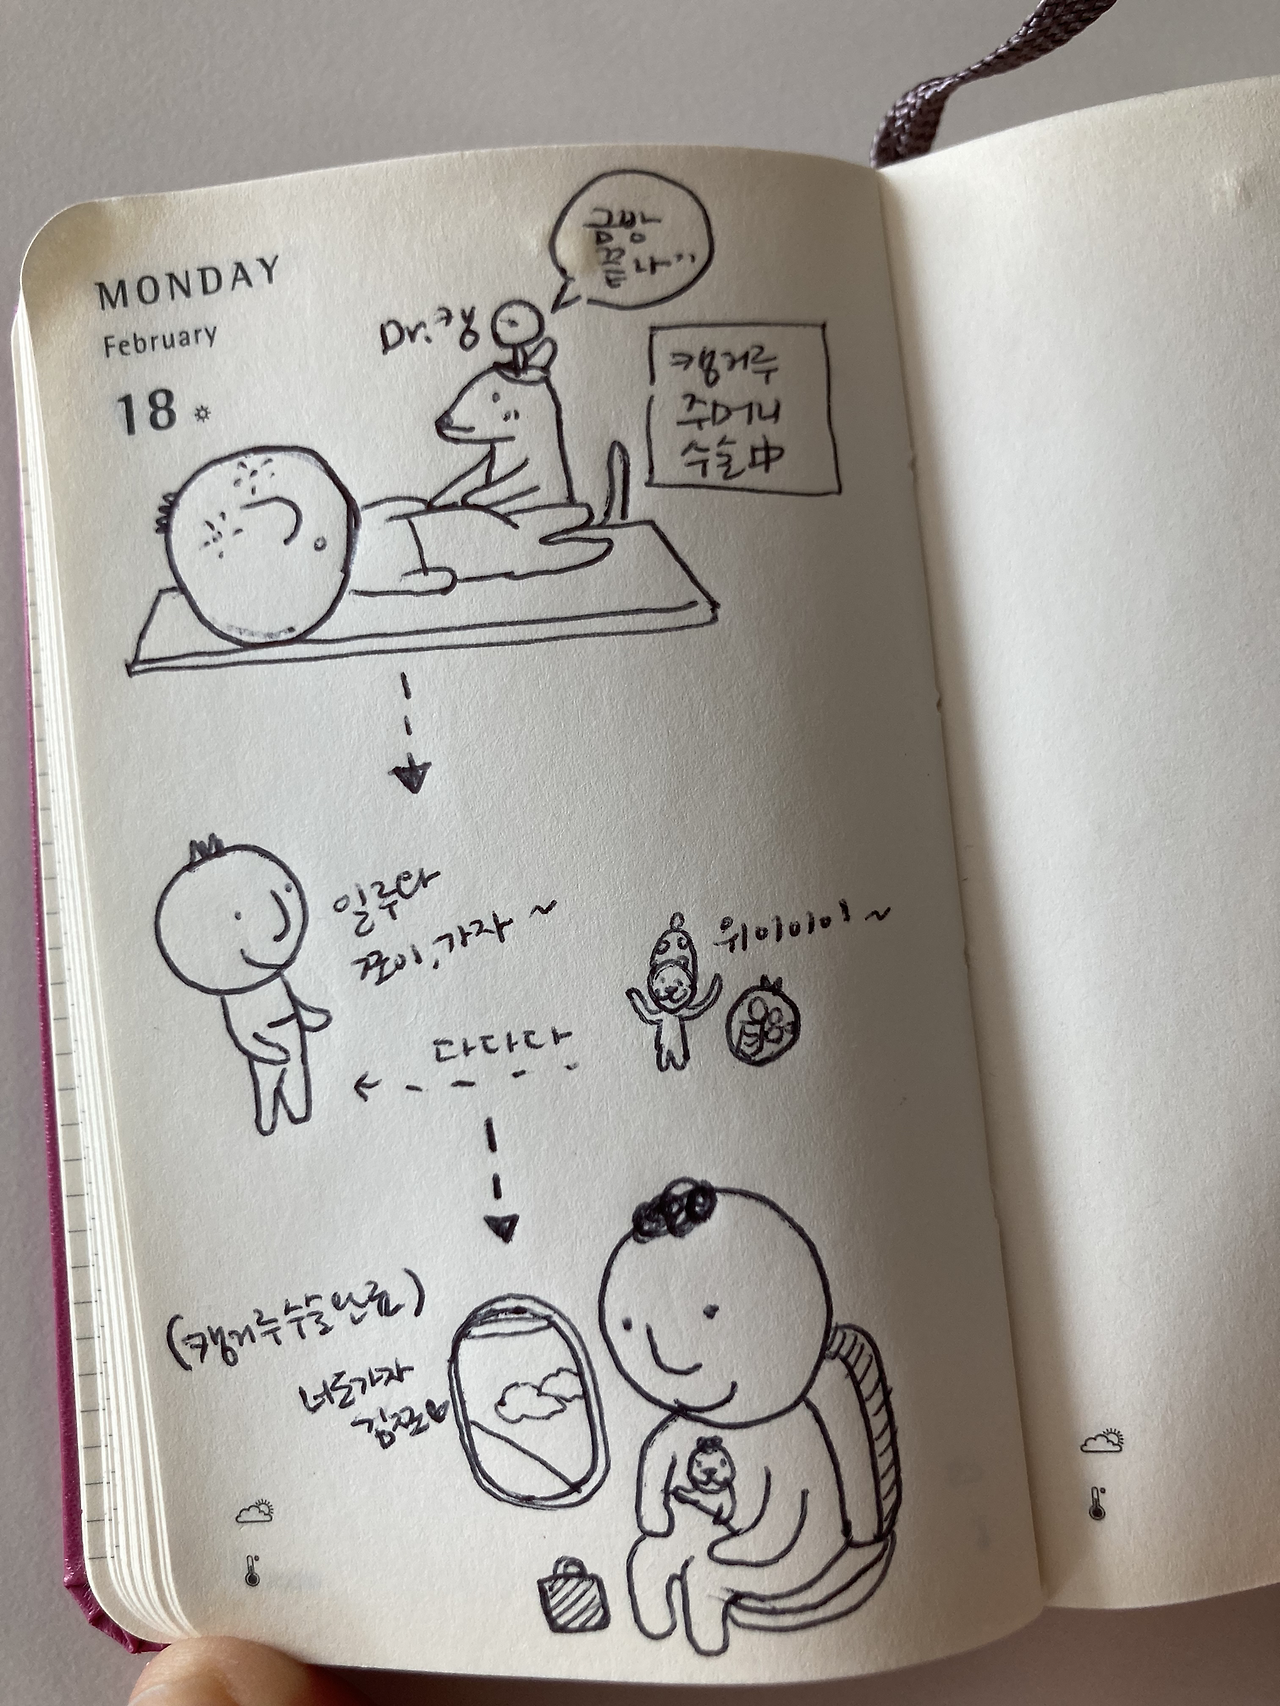 MONDAY
February
18
금방
끝나..
Dr.캥
캥거루
주머니
수술中
일루와
쪼이, 가자~
위이이이~
다다다
(캥거루수술완료)
너도가자
김쪼♥